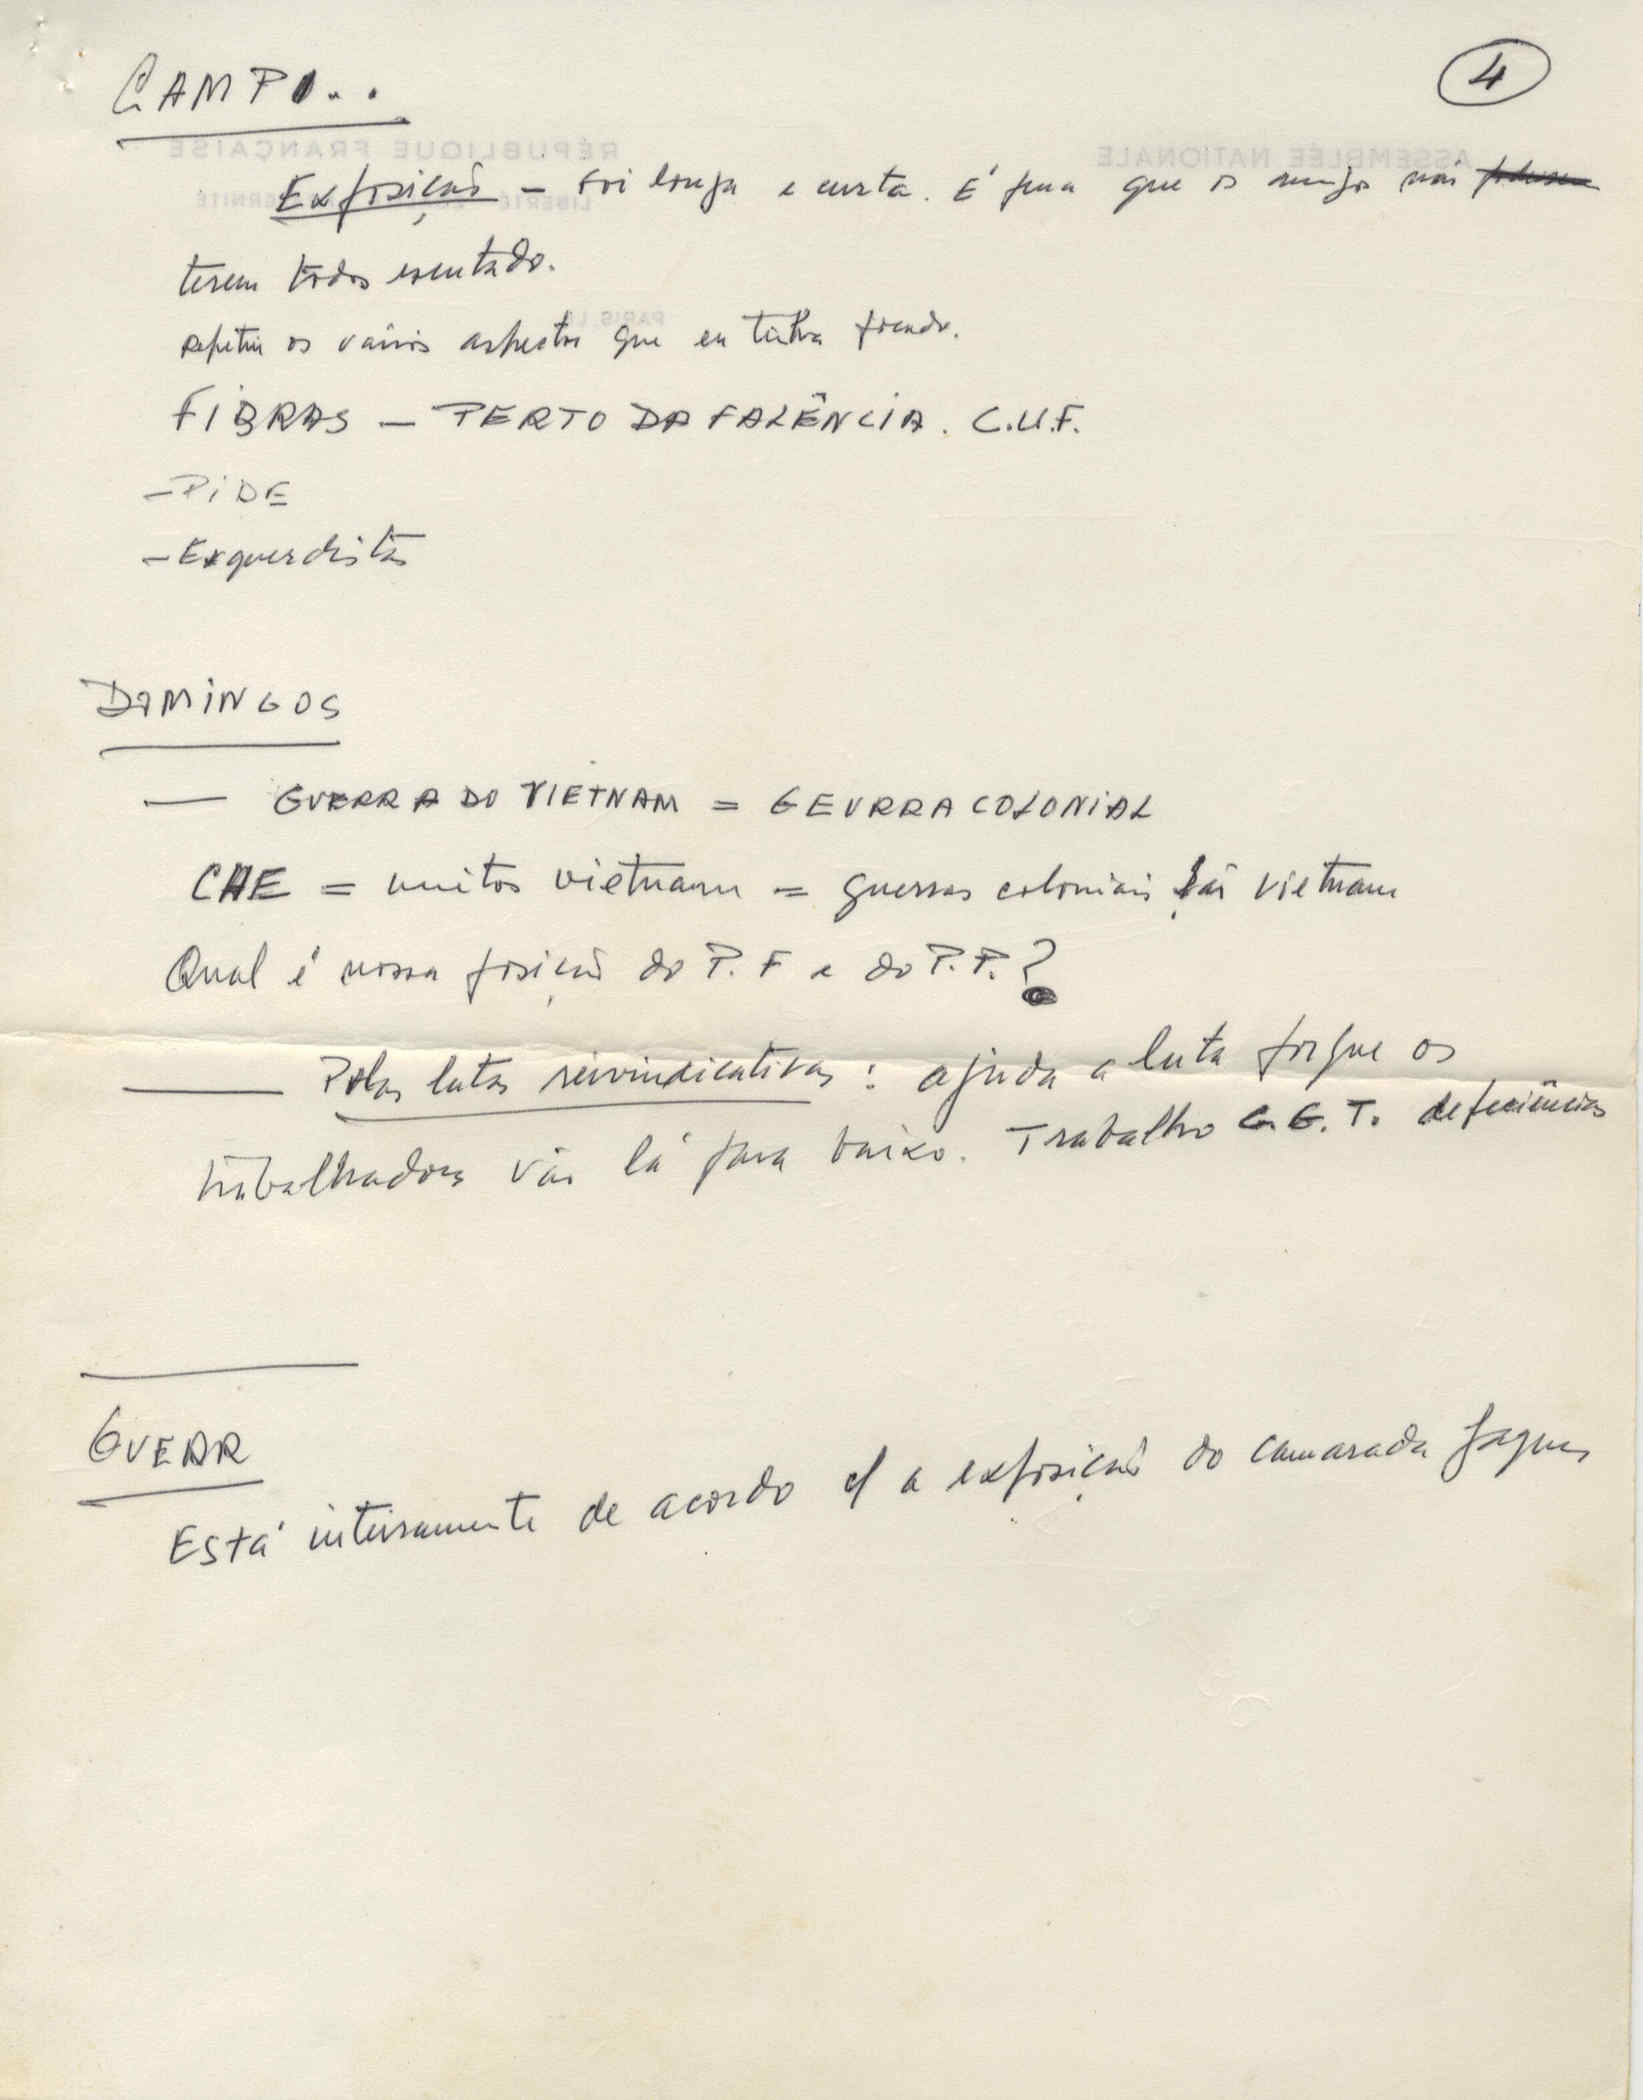 4
CAMPO..
Exposição - Foi longa e curta. É pena que os amigos não
terem todos escutado.
Repetiu os vários aspectos que eu tinha focado.
FIBRAS - PERTO DA FALÊNCIA. C.U.F.
- PIDE
- Exquerdistas
DOMINGOS
— GUERRA DO VIETNAM = GEURRA COLONIAL
CHE = muitos vietnam = guerras coloniais são vietnam
Qual é nossa posição do P.F e do P.P.?
— Pelas lutas reivindicativas: ajuda a luta porque os
trabalhadores vão lá para baixo. Trabalho C.G.T. deficiências
GUERR
Está inteiramente de acordo c/ a exposição do camarada Jaques
RÉPUBLIQUE FRANÇAISE
ASSEMBLÉE NATIONALE